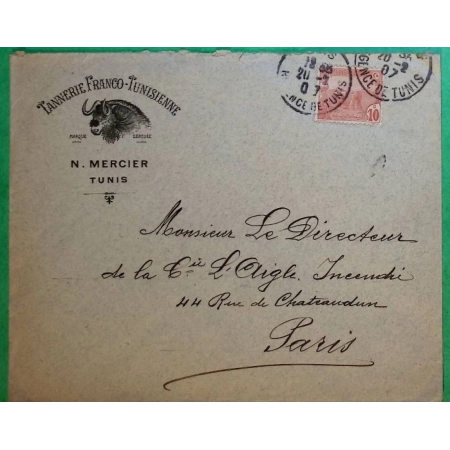 TANNERIE FRANCO-TUNISIENNE
MARQUE DÉPOSÉE
N. MERCIER
TUNIS
20
07
DE TUNIS
20
07
DE TUNIS
10
Monsieur Le Directeur
de la Cie L'Aigle. Incendie
44 Rue de Chateaudun
Paris